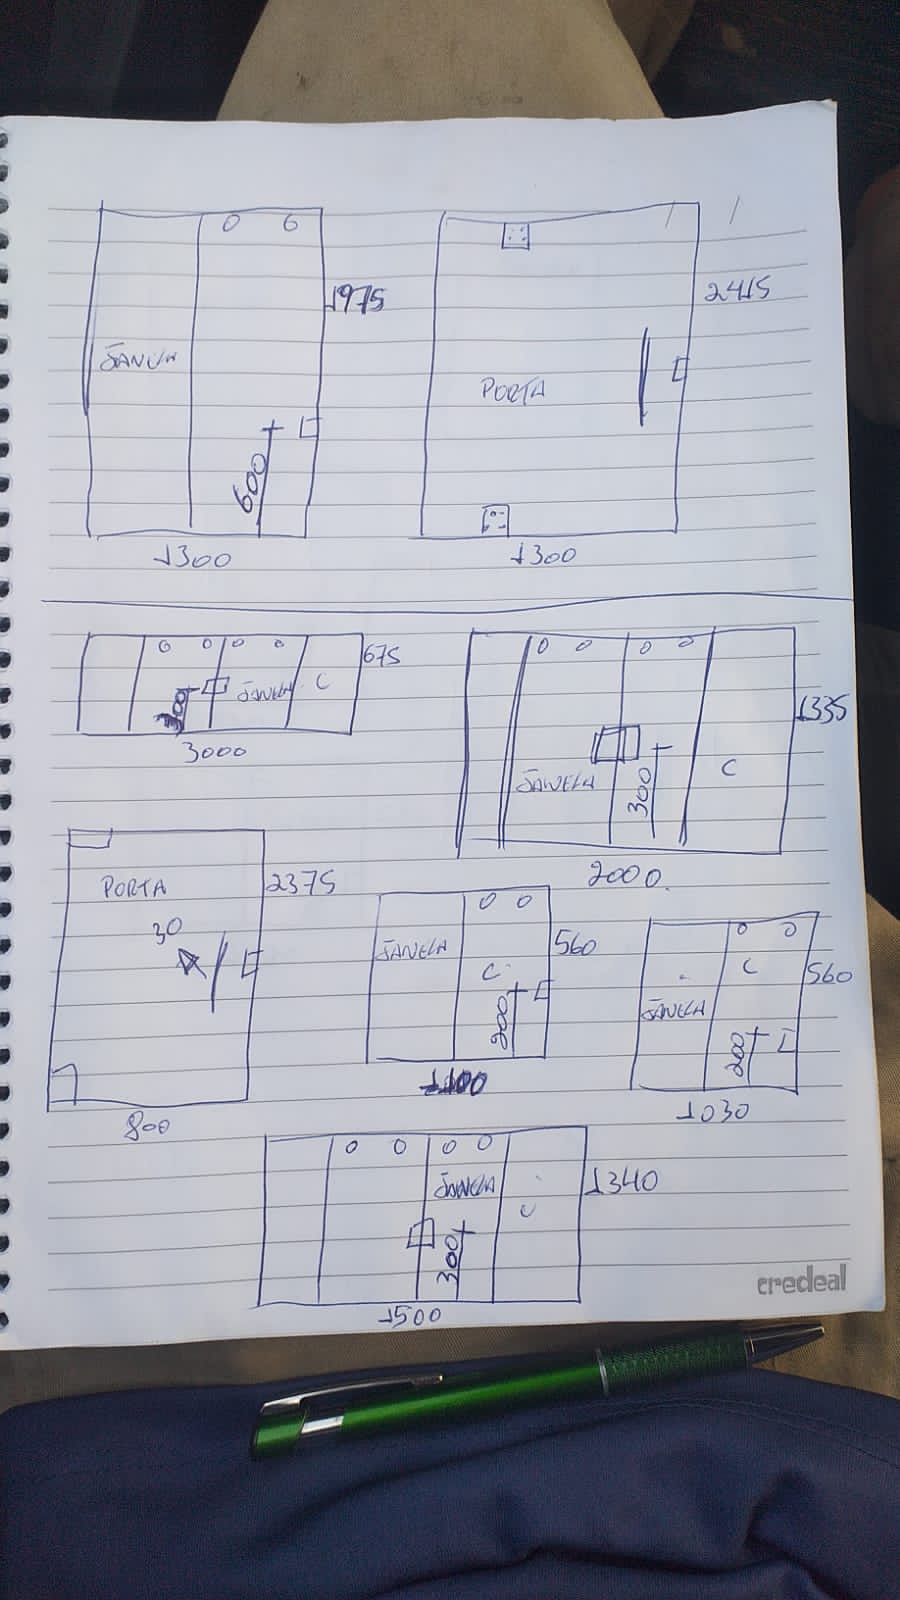 1975
JANELA
600
1300
2415
PORTA
1300
675
JANELA C
3000
1335
JANELA
300
C
2000
PORTA
2375
30
800
JANELA
560
C
200
1100
C
560
JANELA
200
1030
JANELA
1340
C
300
1500
credeal